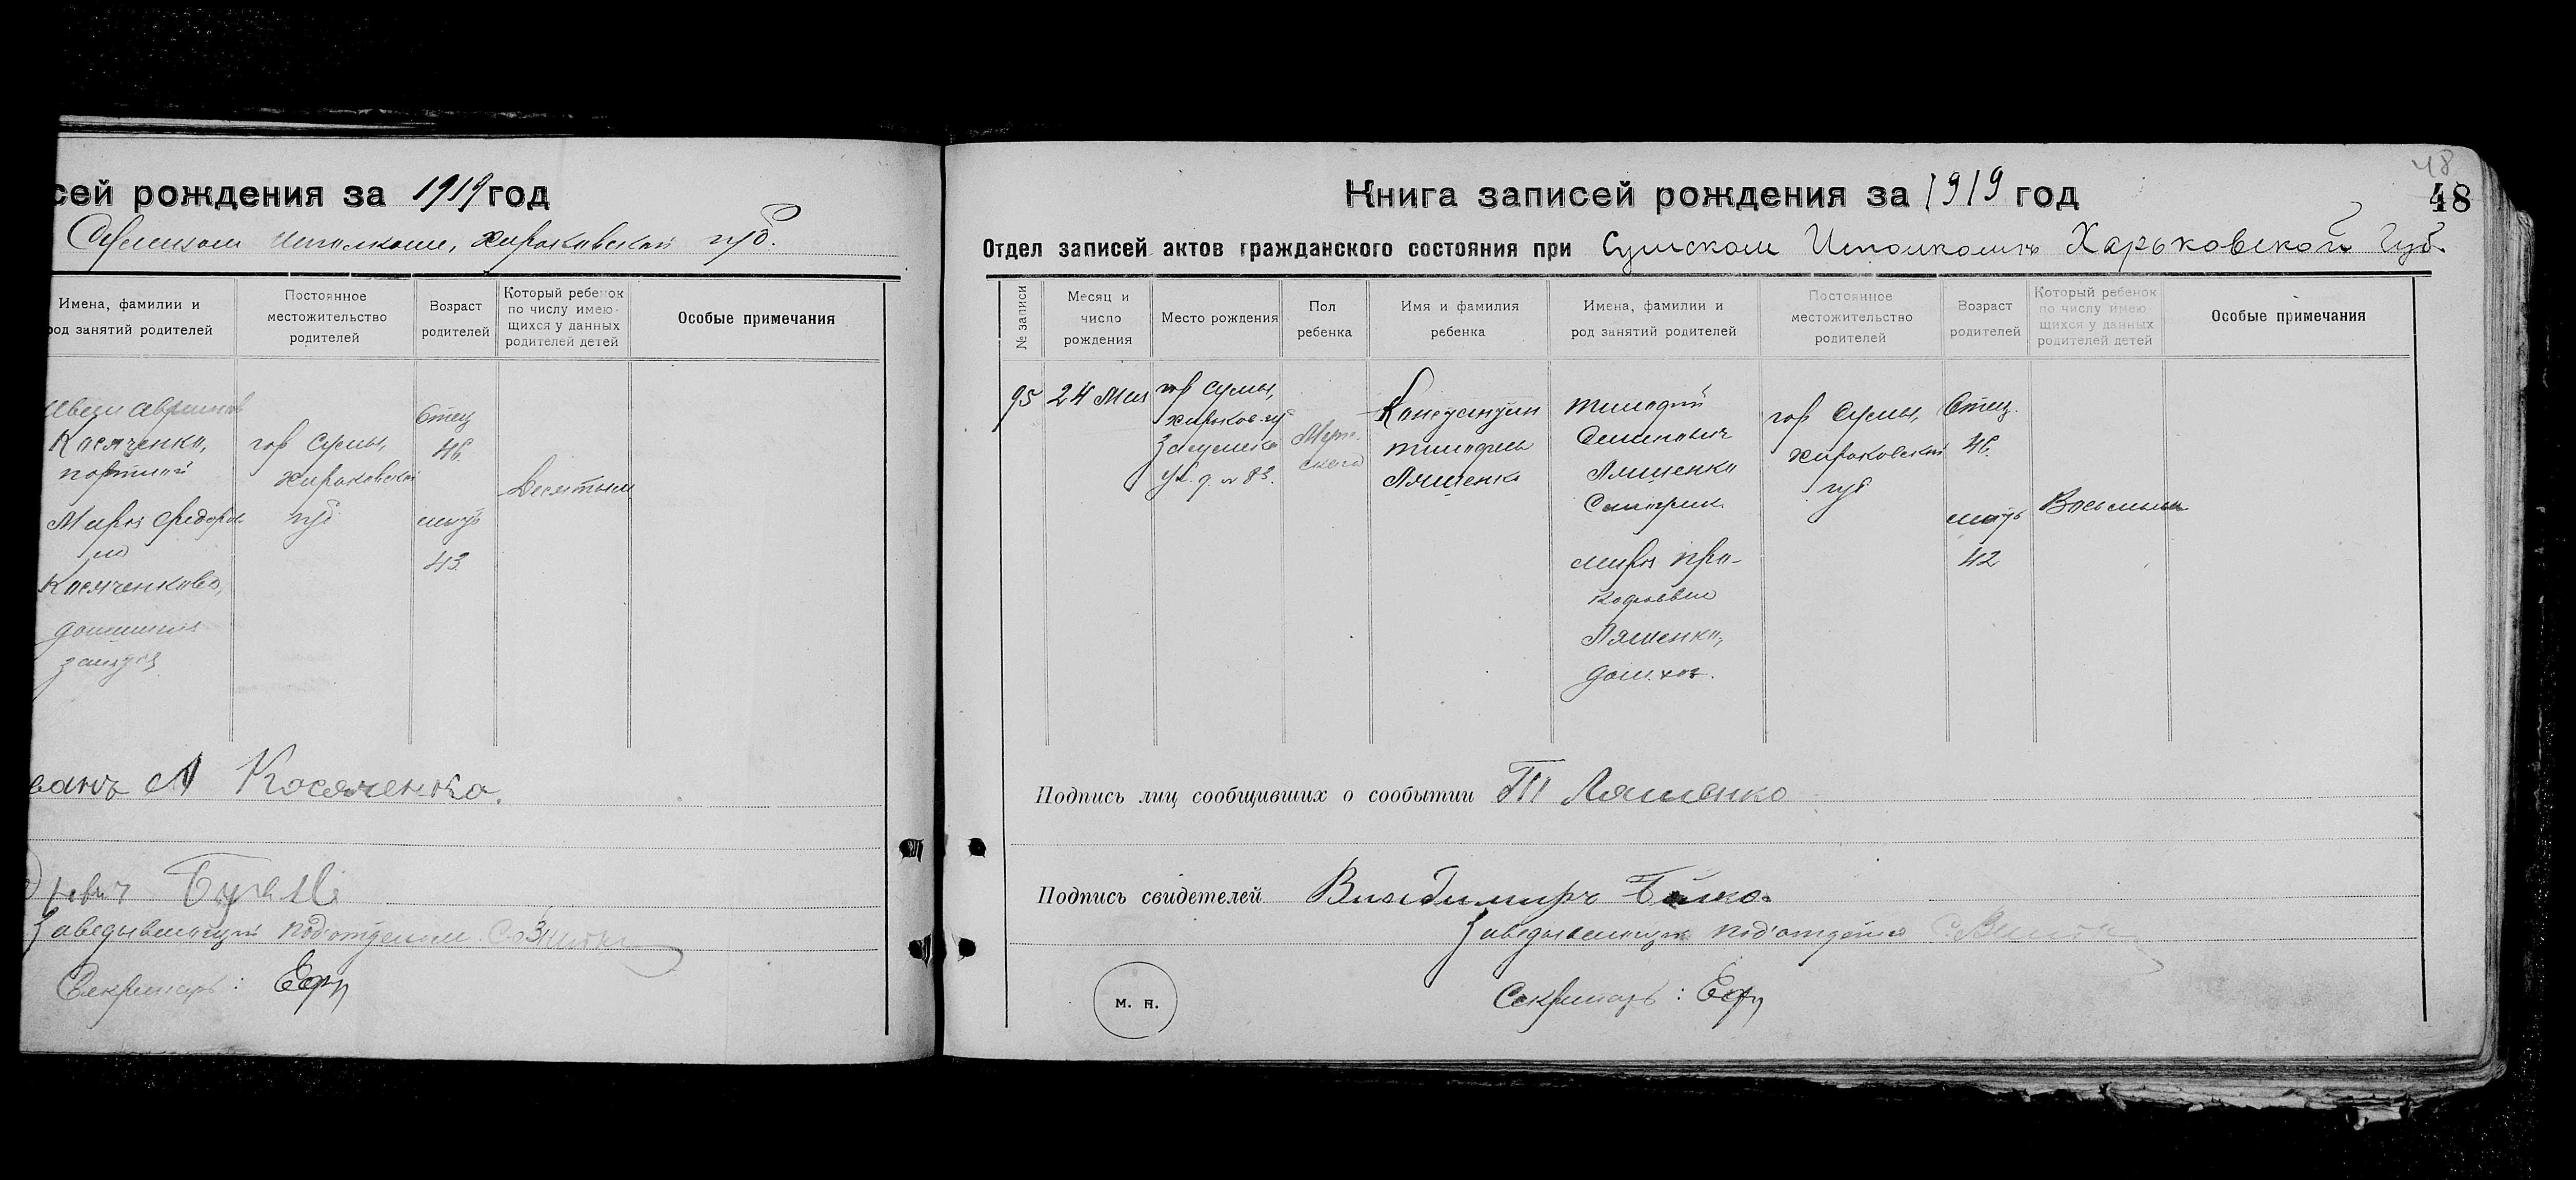 сей рождения за 1919 год
Сумском Исполкоме, Харьковской губ.
Имена, фамилии и
род занятий родителей
Постоянное
местожительство
родителей
Возраст
родителей
Который ребенок
по числу имею-
щихся у данных
родителей детей
Особые примечания
Косяченко,
портной
Мария Федоров
на
Косяченкова,
домашния
занят.
гор Сумы,
Харьковской
губ
Отец
46.
мать
43
Десятым
А Косяченко.
Заведывающий под'отделом
Секретарь:
48
Книга записей рождения за 1919 год
48
Отдел записей актов гражданского состояния при Сумском Исполкомѣ Харьковской Губ.
№ записи
Месяц и
число
рождения
Место рождения
Пол
ребенка
Имя и фамилия
ребенка
Имена, фамилии и
род занятий родителей
Постоянное
местожительство
родителей
Возраст
родителей
Который ребенок
по числу имею-
щихся у данных
родителей детей
Особые примечания
95
24 Мая
гор Сумы,
Харьков. гу
Засумска
ул. д. № 83.
Муж-
ского
Константин
Тимофеев
Ляшенко
Тимофий
Семенович
Ляшенко
Столяр
Мария Про-
кофьевна
Ляшенко,
дом. хоз.
гор Сумы,
Харьковской
губ
Отец.
46.
мать
42
Восьмым
Подпись лиц сообщивших о сообытии Т Ляшенко
Подпись свидетелей Владимиръ
Заведывающий под'отделом
м. п.
Секретарь: